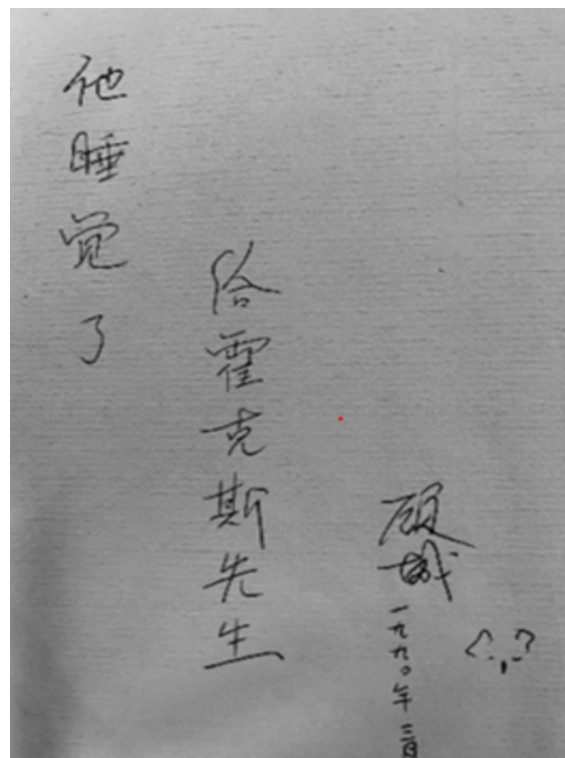 他睡觉了
给霍克斯先生
顾城
一九九〇年三月